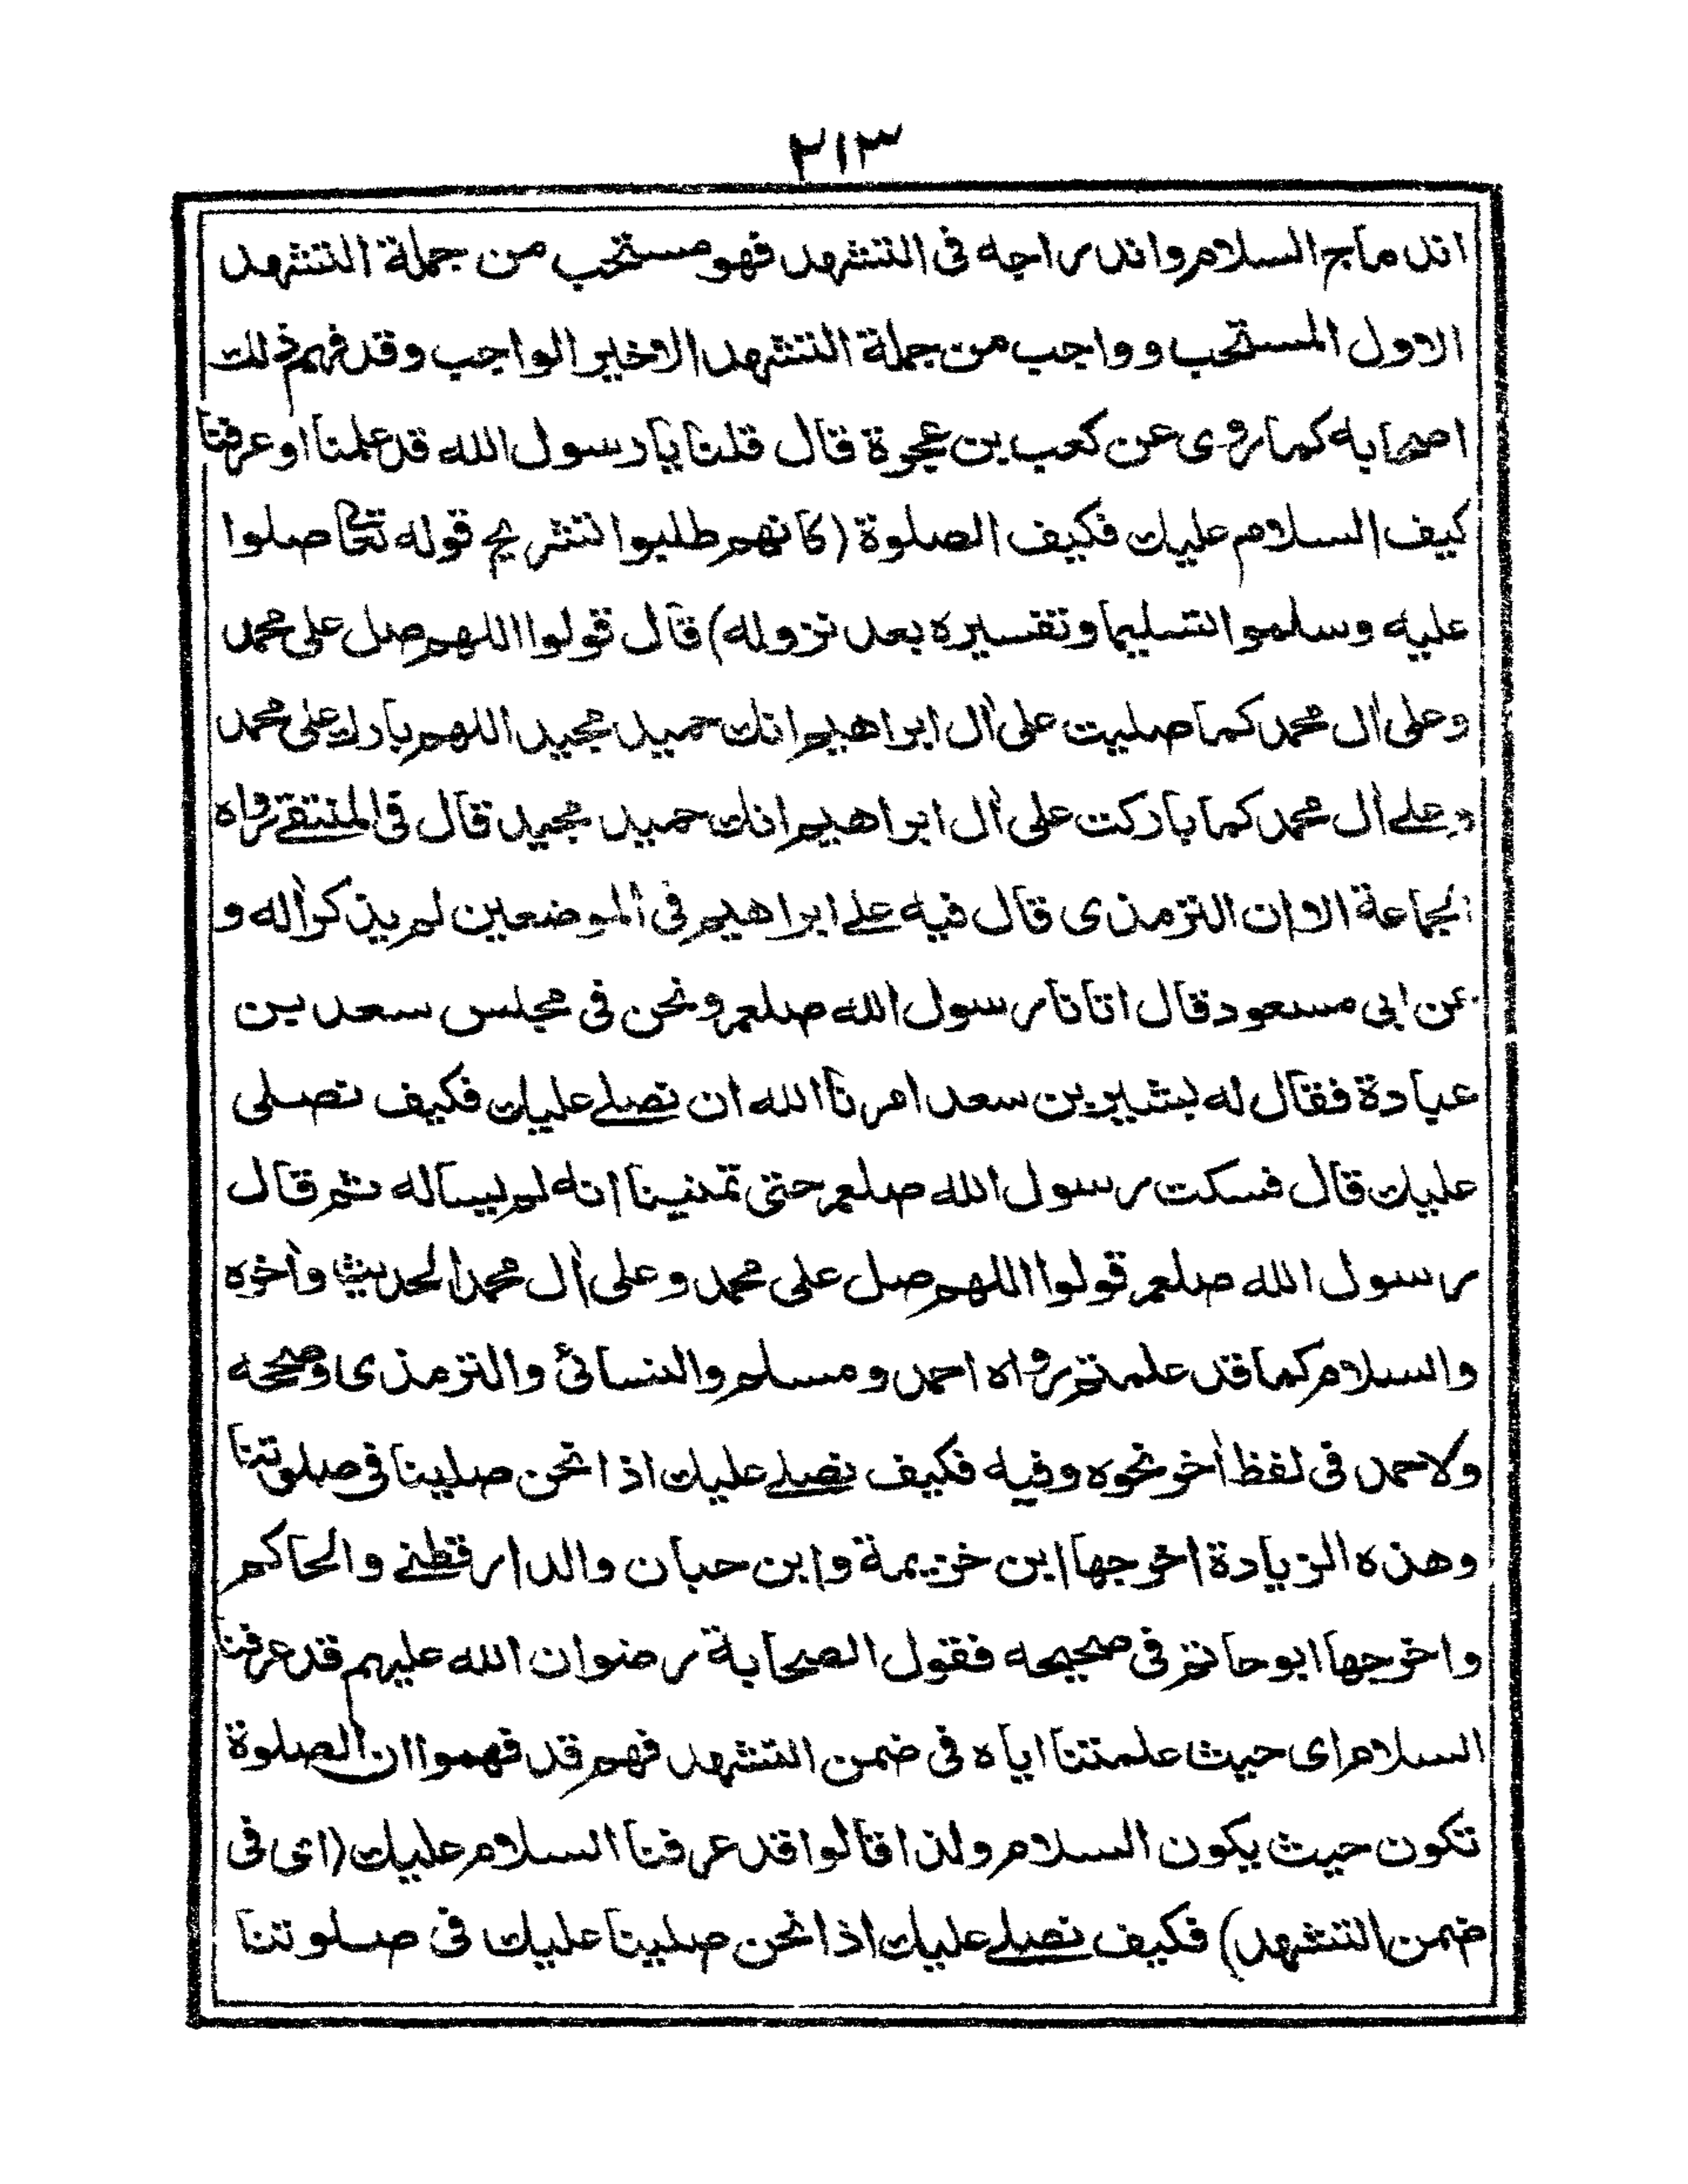 ٢١٣
اندماج السلام واندراجه فى التشهد فهو مستحب من جملة التشهد
الاول المستحب وواجب من جملة التشهد الاخير الواجب وقد فهم ذلك
اصحابه كما روى عن كعب بن عجرة قال قلنا يا رسول الله قد علمنا او عرفنا
كيف السلام عليك فكيف الصلوة (كانهم طلبوا تشريح قوله تعالى صلوا
عليه وسلموا تسليما وتفسيره بعد نزوله) قال قولوا اللهم صل على محمد
وعلى اٰل محمد كما صليت على اٰل ابراهيم انك حميد مجيد اللهم بارك على محمد
وعلے اٰل محمد كما باركت على اٰل ابراهيم انك حميد مجيد قال فى المنتقے رواه
الجماعة الا ان الترمذى قال فيه علے ابراهيم فى الموضعين لم يذكر اٰله و
عن ابى مسعود قال اتانا رسول الله صلعم ونحن فى مجلس سعد بن
عبادة فقال له بشير بن سعد امرنا الله ان نصلے عليك فكيف نصلى
عليك قال فسكت رسول الله صلعم حتى تمنينا انه لم يساله ثم قال
رسول الله صلعم قولوا اللهم صل على محمد وعلى اٰل محمد الحديث واٰخره
والسلام كما قد علمتم رواه احمد ومسلم والنسائى والترمذى وصححه
ولاحمد فى لفظ اٰخر نحوه وفيه فكيف نصلے عليك اذا نحن صلينا فى صلوتنا
وهذه الزيادة اخرجها ابن خزيمة وابن حبان والدارقطنے والحاكم
واخرجها ابو حاتم فى صحيحه فقول الصحابة رضوان الله عليهم قد عرفنا
السلام اى حيث علمتنا اياه فى ضمن التشهد فهم قد فهموا ان الصلوة
تكون حيث يكون السلام ولذا قالوا قد عرفنا السلام عليك (اى فى
ضمن التشهد) فكيف نصلے عليك اذا نحن صلينا عليك فى صلوتنا